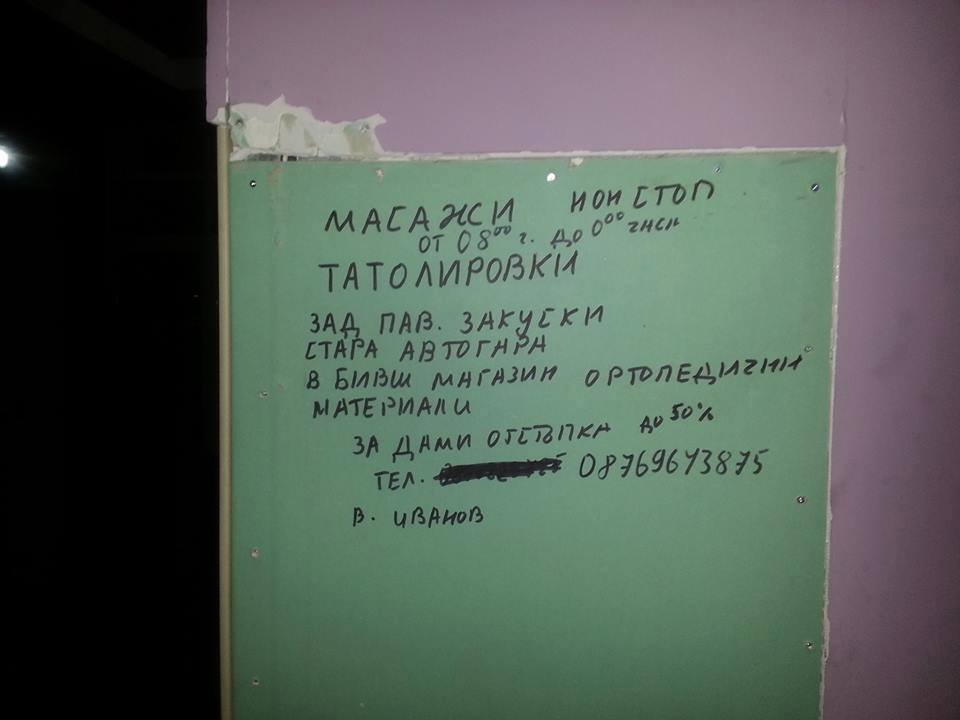 МАСАЖИ НОН СТОП
ОТ 08⁰⁰ г. ДО 0⁰⁰
ТАТОЛИРОВКИ
ЗАД ПАВ. ЗАКУСКИ
СТАРА АВТОГАРА
В БИВШ МАГАЗИН ОРТОПЕДИЧНИ
МАТЕРИАЛИ
ЗА ДАМИ ОТСТЪПКА ДО 50%
ТЕЛ. 08769673875
В. ИВАНОВ